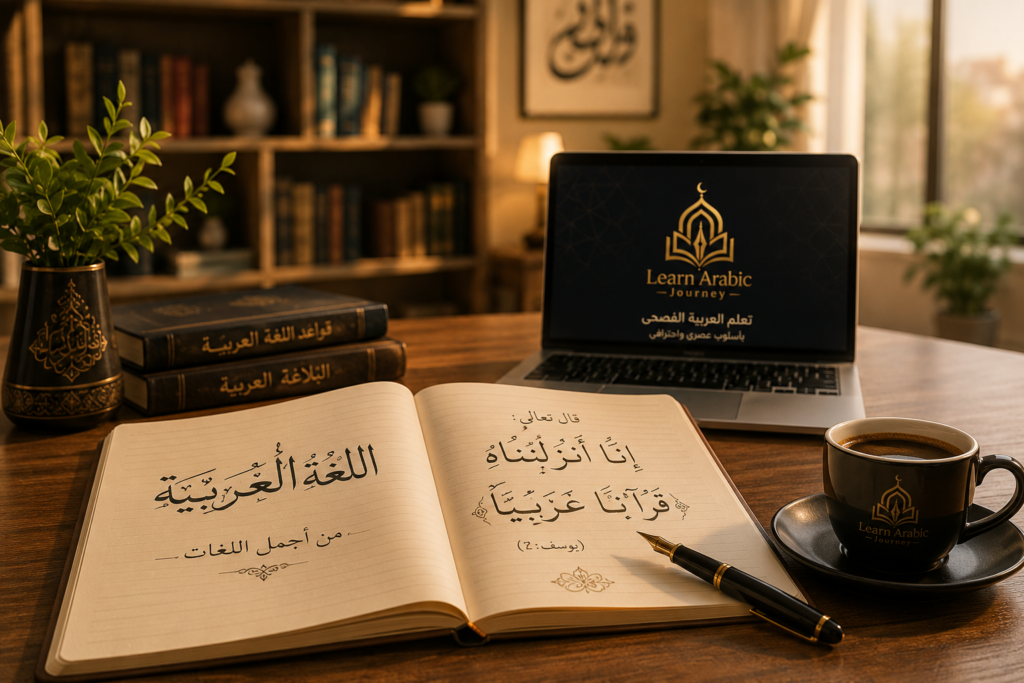 Learn Arabic
Journey
تعلم العربية الفصحى
بأسلوب عصري واحترافي
قواعد اللغة العربية
البلاغة العربية
اللغةُ العُربيَّة
من أجمل اللغات
قال تعالى:
إِنَّا أَنزَلُنْنَاهُ
قَرْآنَا غَرَبِيَّاً
(يوسف:2)
Learn Arabic
Journey